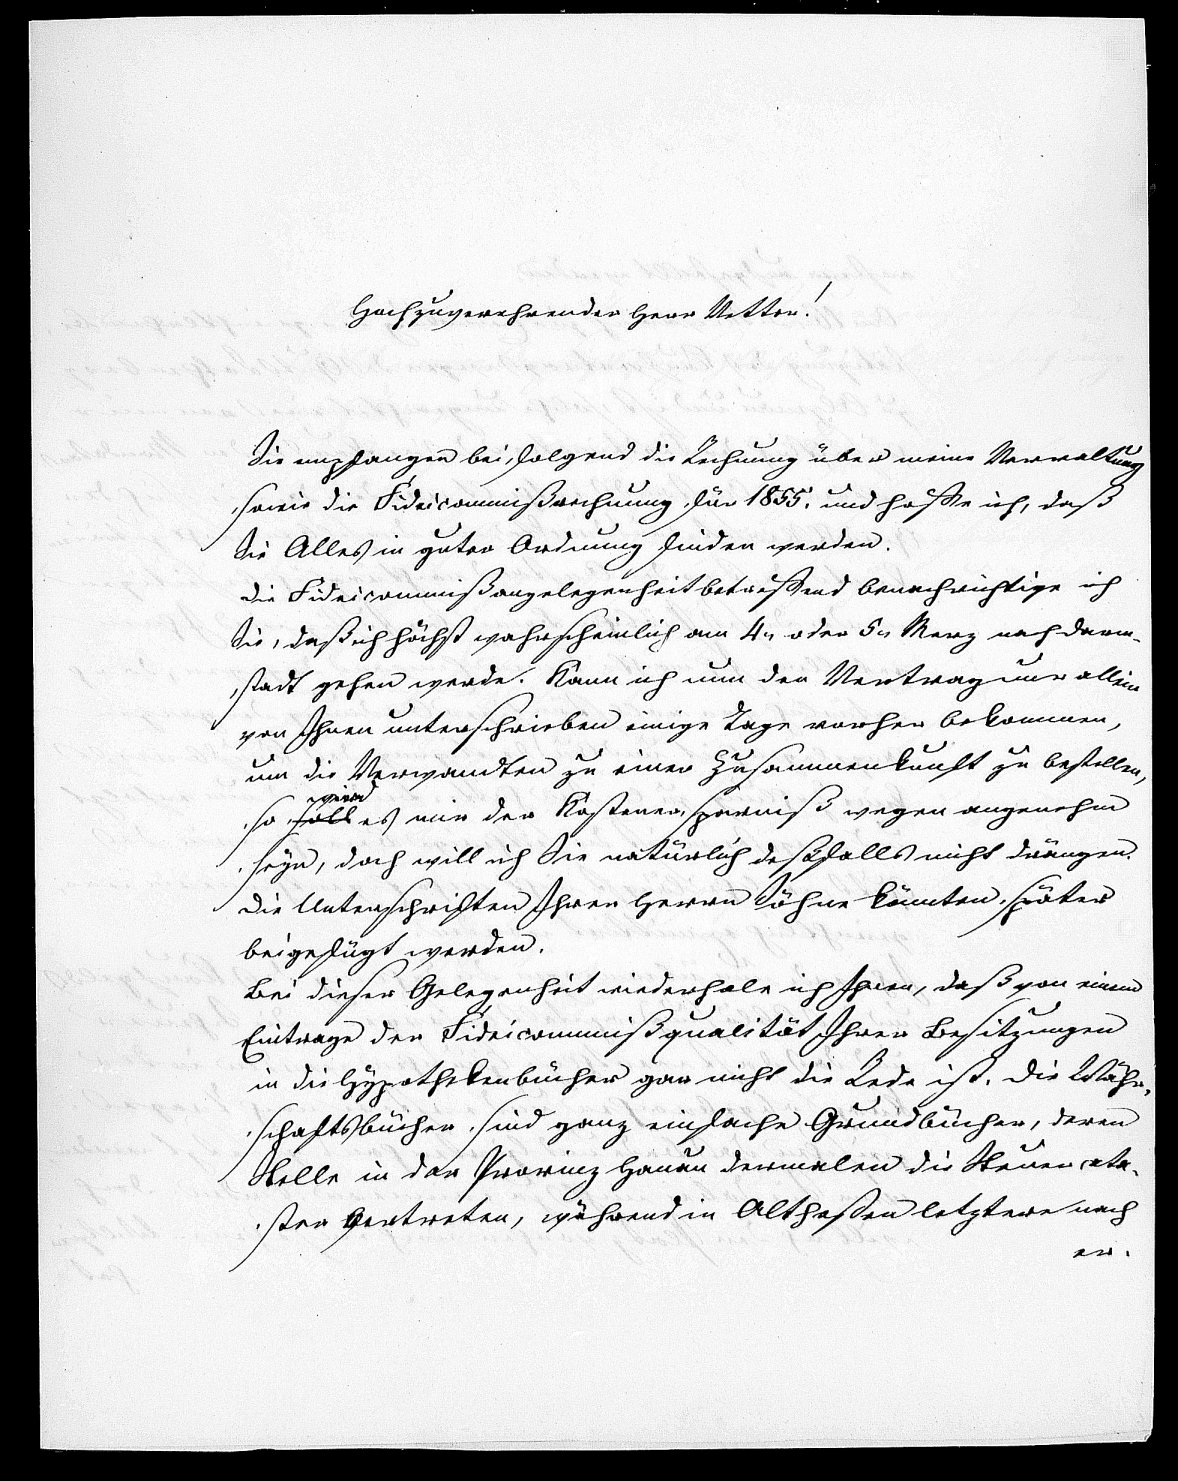 Hochzuverehrender Herr Vetter!
Sie empfangen beifolgend die Rechnung über meine Verwaltung
sowie die Fideicommißrechnung für 1855. und hoffe ich, daß
Sie Alles in guter Ordnung finden werden.
Die Fideicommißangelegenheit betreffend benachrichtige ich
Sie, daß ich höchst wahrscheinlich am 4n oder 5n Merz nach Darm-
stadt gehen werde. Kann ich nun den Vertrag nur allein
von Ihnen unterschrieben einige Tage vorher bekommen,
um die Verwandten zu einer Zusammenkunft zu bestellen,
wird
so soll es mir der Kostenersparniß wegen angenehm
seyn, doch will ich Sie natürlich deßfalls nicht drängen.
Die Unterschriften Ihrer Herrn Söhne könnten später
beigefügt werden.
Bei dieser Gelegenheit wiederhole ich Ihnen, daß von einem
Eintrage der Fideicommißqualität Ihrer Besitzungen
in die Hÿpothekenbücher gar nicht die Rede ist. Die Währ-
schaftsbücher sind ganz einfache Grundbücher, deren
Stelle in der Provinz Hanau dermalen die Steuercata-
ster vertreten, während in Althessen letztere nach
er.